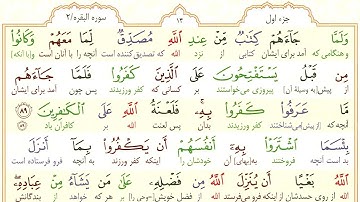 جزء اول سوره البقره/۲
وَلَمَّا جَآءَهُمْ كِتَابٌ مِّنْ عِندِ اللَّهِ مُصَدِّقٌ لِّمَا مَعَهُمْ وَكَانُوا
وهنگامی که آمد برای ایشان کتابی از نزد الله که تصدیق کننده است آنچه را با آنان است و(با آنکه)
مِن قَبْلُ يَسْتَفْتِحُونَ عَلَى الَّذِينَ كَفَرُوا فَلَمَّا جَآءَهُم
از پیش(به وسیله آن) پیروزی می‌خواستند بر کسانی که کفر ورزیدند پس چون آمد برای ایشان
مَّا عَرَفُوا كَفَرُوا بِهِ فَلَعْنَةُ اللَّهِ عَلَى الْكَافِرِينَ ﴿٨٩﴾
آنچه که می‌شناختند کفر ورزیدند بدان پس لعنت الله بر کافران باد
بِئْسَمَا اشْتَرَوْا بِهِ أَنفُسَهُمْ أَن يَكْفُرُوا بِمَا أَنزَلَ
بد است آنچه فروختند به(بهای) آن خودشان را اینکه کفر ورزند به آنچه فرو فرستاده است
اللَّهُ بَغْيًا أَن يُنَزِّلَ اللَّهُ مِن فَضْلِهِ عَلَى مَن يَشَآءُ مِنْ عِبَادِهِ
الله از روی حسد از اینکه فرو می‌فرستد الله از فضل خویش بر می‌خواهد از بندگانش